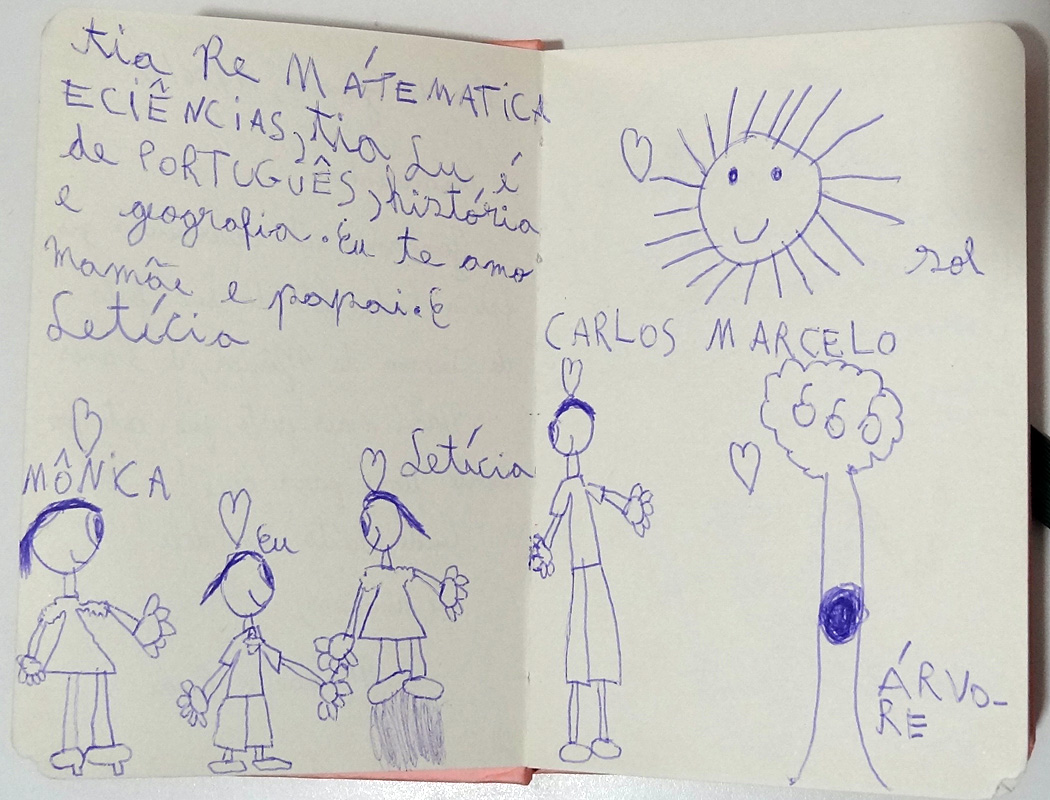 tia Re MÁTEMATICA
E CIÊNCIAS, tia Lu é
de PORTUGUÊS, história
e geografia. Eu te amo
Mamãe e papai. E
Letícia
sol
CARLOS MARCELO
Letícia
MÔNICA
Eu
ÁRVO-
RE